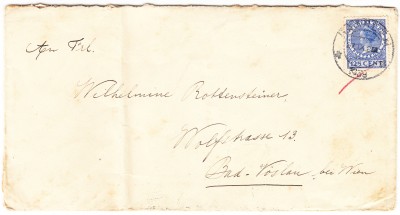 An Frl.
Wilhelmine Rottensteiner,
Wolfstrasse 13.
Bad-Vöslau, bei Wien
12½ CENT